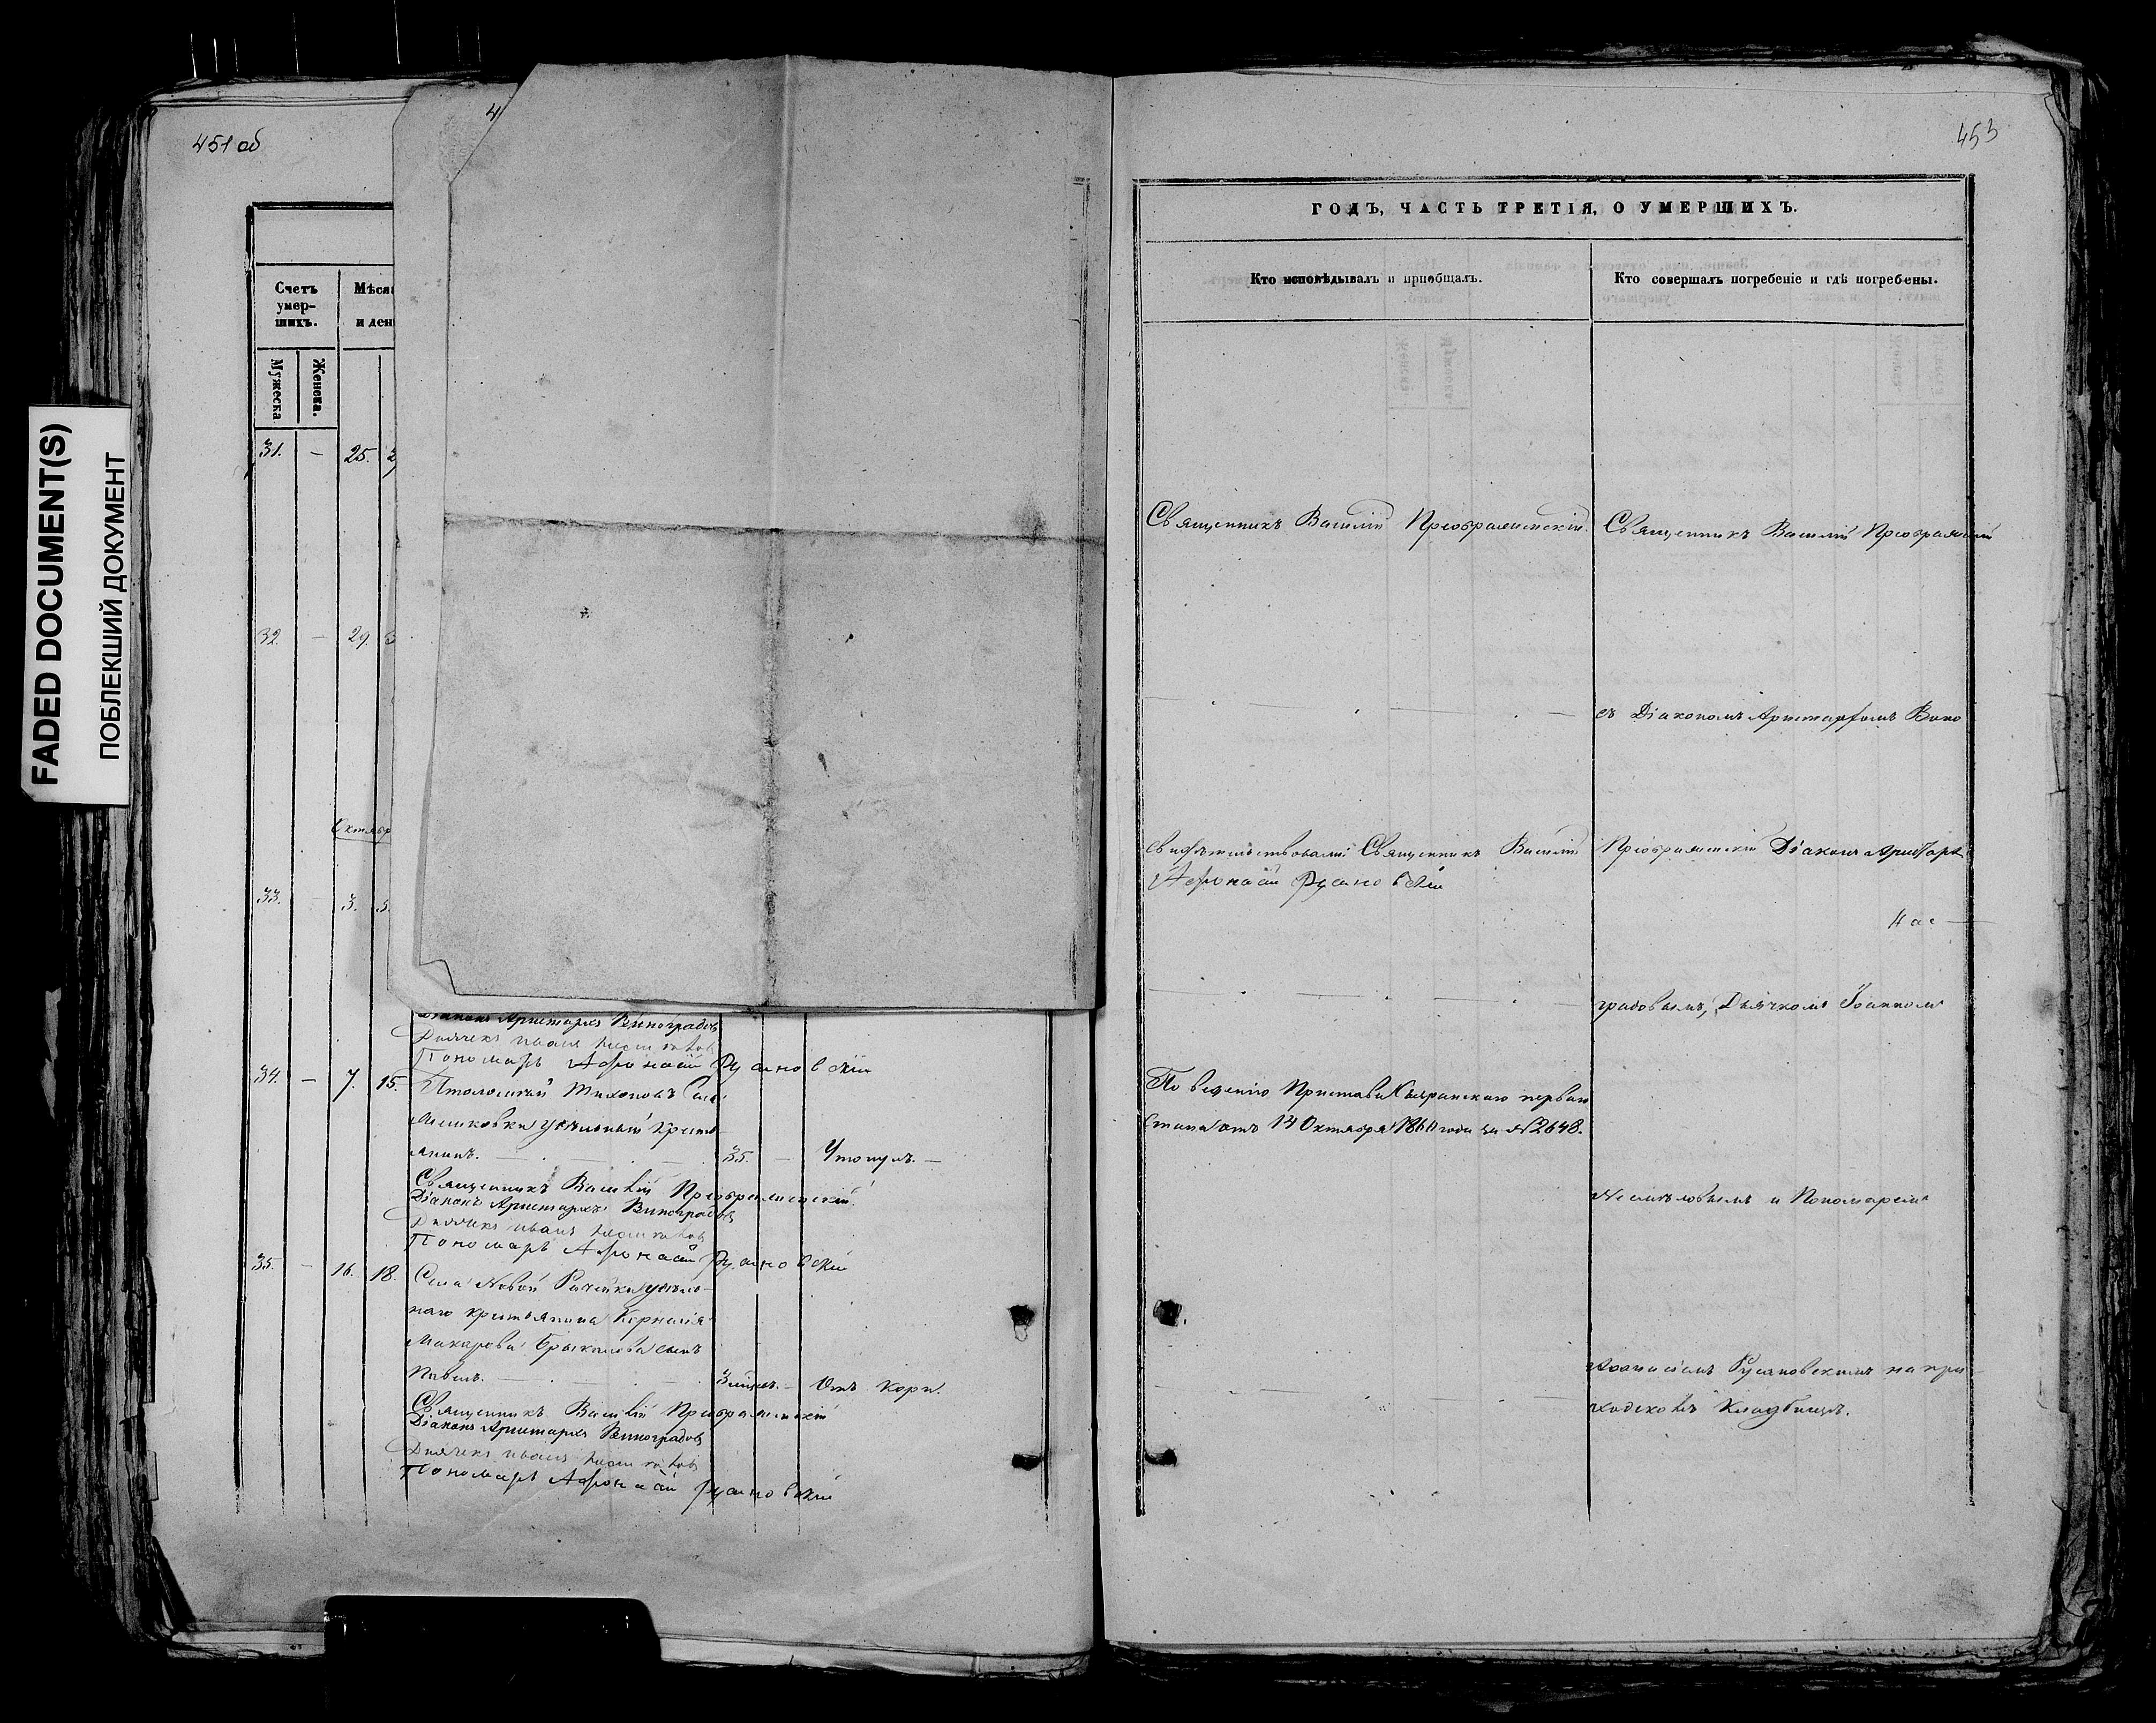 451 об
FADED DOCUMENT(S)
ПОБЛЕКШИЙ ДОКУМЕНТ
Счетъ
умер-
шихъ.
Мѣся
и ден
Мужеска
Женска.
31. — 25.
32. — 29.
Октябр
33. 3. 5.
Діаконъ Аристархъ Виноградовъ
Дьячекъ Иванъ
Пономарь Афонасій Русановскій
34. — 7. 15. Тихоновъ
удѣльный кресть-
янинъ. 35. — Утонулъ. —
Священникъ Василій Преображенскій
Діаконъ Аристархъ Виноградовъ
Дьячекъ Иванъ
Пономарь Афонасій Русановскій
35. — 16. 18. Села Новой Рачейки удѣль-
наго крестьянина Корнилія
Макарова сынъ
Павелъ. 3 мѣсяц. — Отъ кори.
Священникъ Василій Преображенскій
Діаконъ Аристархъ Виноградовъ
Дьячекъ Иванъ
Пономарь Афонасій Русановскій
453
ГОДЪ, ЧАСТЬ ТРЕТІЯ, О УМЕРШИХЪ.
Кто исповѣдывалъ и пріобщалъ.
Кто совершалъ погребеніе и гдѣ погребены.
Священникъ Василій Преображенскій.
Священникъ Василій Преображенскій
съ Діакономъ Аристархомъ Вино
свидѣтельствовали: Священникъ Василій Преображенскій Діаконъ Аристархъ
Афонасій Русановскій
градовымъ, Дьячкомъ Іоанномъ
По вѣденію Пристава Сызранскаго перваго
Стана отъ 14 Октября 1860 года за № 2648.
Несмѣловымъ и Пономаремъ
Афанасіемъ Русановскимъ на при-
ходскомъ Кладбищѣ.